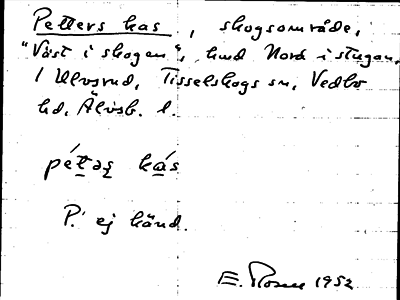 Petters kas, skogsområde,
"Väst i skogen", hmd Nord i stugan,
1 Ulvsrud, Tisselskogs sn, Vedbo
hd, Älvsb. l.
pétəʂ kás
P. ej känd.
E. Rosén 1952